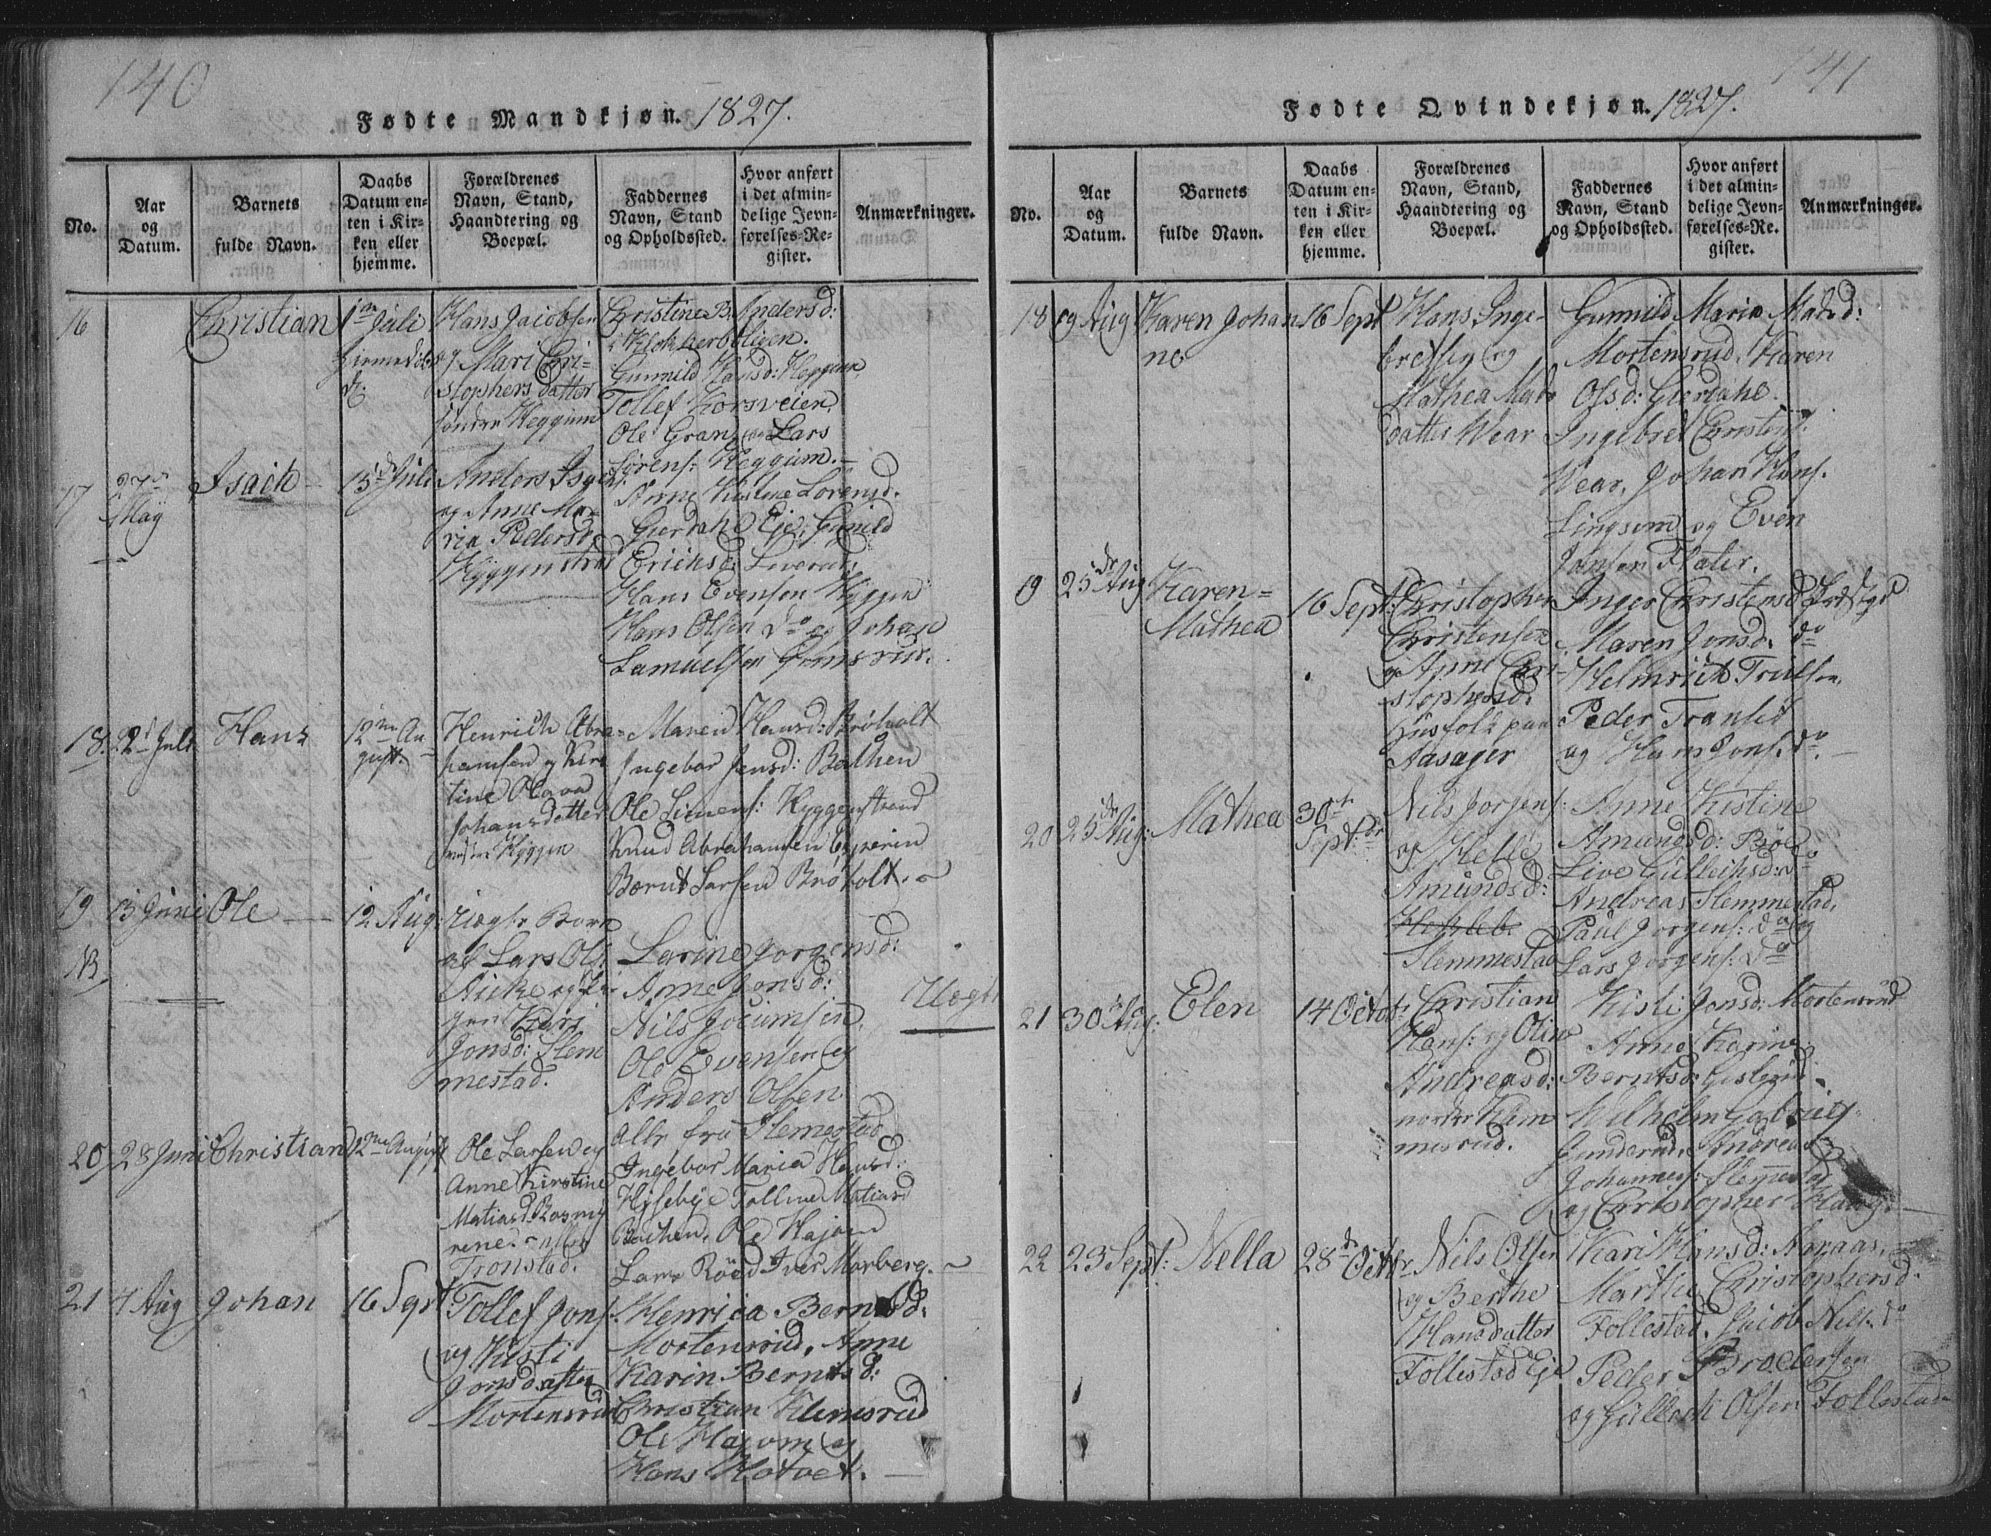 140
Fødte Mandkjøn. 1827.
No.
Aar og Datum.
Barnets fulde Navn.
Daabs Datum enten i Kirken eller hjemme.
Forældrenes Navn, Stand, Haandtering og Boepæl.
Faddernes Navn, Stand og Opholdssted.
Hvor anført i det almindelige Jevnførelses-Register.
Anmærkninger.
16
Christian
1ste Juli
Hans Jacobsen
og Mari Chri-
stophers datter
søndre Heggum
Christine B. Andersd:
i Klokkerboligen.
Gunnild Hansd: Heggum
Tollef Korsveien,
Ole Gran, og Lars
Sørens: Heggum.
17
27
May
Isach
15 Juli
Anders
og Anne Ma-
ria Pedersd.
Hyggenstrand
Anne Kirstine Lorensd.
Gierdahl Eje, Gunild
Erichsd:
Hans Evensen Hyggen
Hans Olsen do og Johan
Samuelsen Grimsrud.
18.
22 Juli
Hans
12te Au-
gust.
Henrich Abra-
hamsen og Kir-
stine Olava
Johansdatter
Hyggen
Maren Hansd: Brøholt
Ingebor Jensd: Bakken
Ole Simens: Hyggenstrand
Knud Abrahamsen
Bernt Larsen Brøholt.
19
NB
13 Juni
Ole
12 Aug:
Uægte Barn
af Lars Ols:
og
Kari
Jonsd: Slem
mestad.
Larine Jorgensd:
Anne Jonsd:
Nils Jocumsen,
Ole Evensen og
Anders Olsen
alle fra Slemestad
Uægte
20
28 Juni
Christian
12te August
Ole Larsen og
Anne Kirstine
Matiasd.
Tronstad.
Ingebor Maria Hansd:
Tolline Matiasd
Bachen, Ole
Lars Røed Iver Morberg.
21
4 Aug
Johan
16 Sept
Tollef Jons:
og Kisti
Jonsdatter
Mortensrud
Henrica Berntsd:
Mortensrud, Anne
Karin Berntsd:
Christian Klemsrud
Ole Hajum og
Hans Hotvet.
141
Fødte Qvindekjøn. 1827.
No.
Aar og Datum.
Barnets fulde Navn.
Daabs Datum enten i Kirken eller hjemme.
Forældrenes Navn, Stand, Haandtering og Boepæl.
Faddernes Navn, Stand og Opholdssted.
Hvor anført i det almindelige Jevnførelses-Register.
Anmærkninger.
18
19 Aug
Karen Johan
ne
16 Sept
Hans Inge-
bretsen og
Mathea Mads
datter Wear
Gunnild Maria Madsd:
Mortensrud, Karen
Olsd: Gierdahl
Ingebret Christens:
Wear, Johan Hans:
Lingsom og Even
Jonsen Flater.
19
25de Aug
Karen-
Mathea
16 Sept:
Christopher
Christensen
og Anne Chri-
stophersd:
Huusfolk paa
Aasager
Inger Christensd
Maren Jonsd: do
Helmrich Trulsen,
Peder Tranbÿ
og Hans Jons: do
20
25de Aug:
Mathea
30te
Septbr
Nils Jorgens:
og Helle
Amundsd:
Slemmestad
Anne Kistine
Amundsd: Bröe
Live Gullichsd: do
Andreas Slemmestad,
Paul Jorgens: do og
Lars Jorgens: do
21
30te Aug:
Elen
14 Octob:
Christian
Hans: og Oline
Andreasd:
nordre Klem
mesrud.
Kisti Jonsd: Mortensrud
Anne Karine
Berntsd: Gislerud
Wilhelm Gabriels:
Gunderud, Andreas
Johannes: Slemmestad
og Christopher Haug.
22
23 Sept:
Nella
28de
Octbr
Nils Olsen
og Berthe
Hansdatter
Follestad Eje
Kari Hansd: Aaraas,
Marthe Christophersd:
Follestad, Jacob Nils: do
Peder Brochersen
og Gullech Olsen Follestad